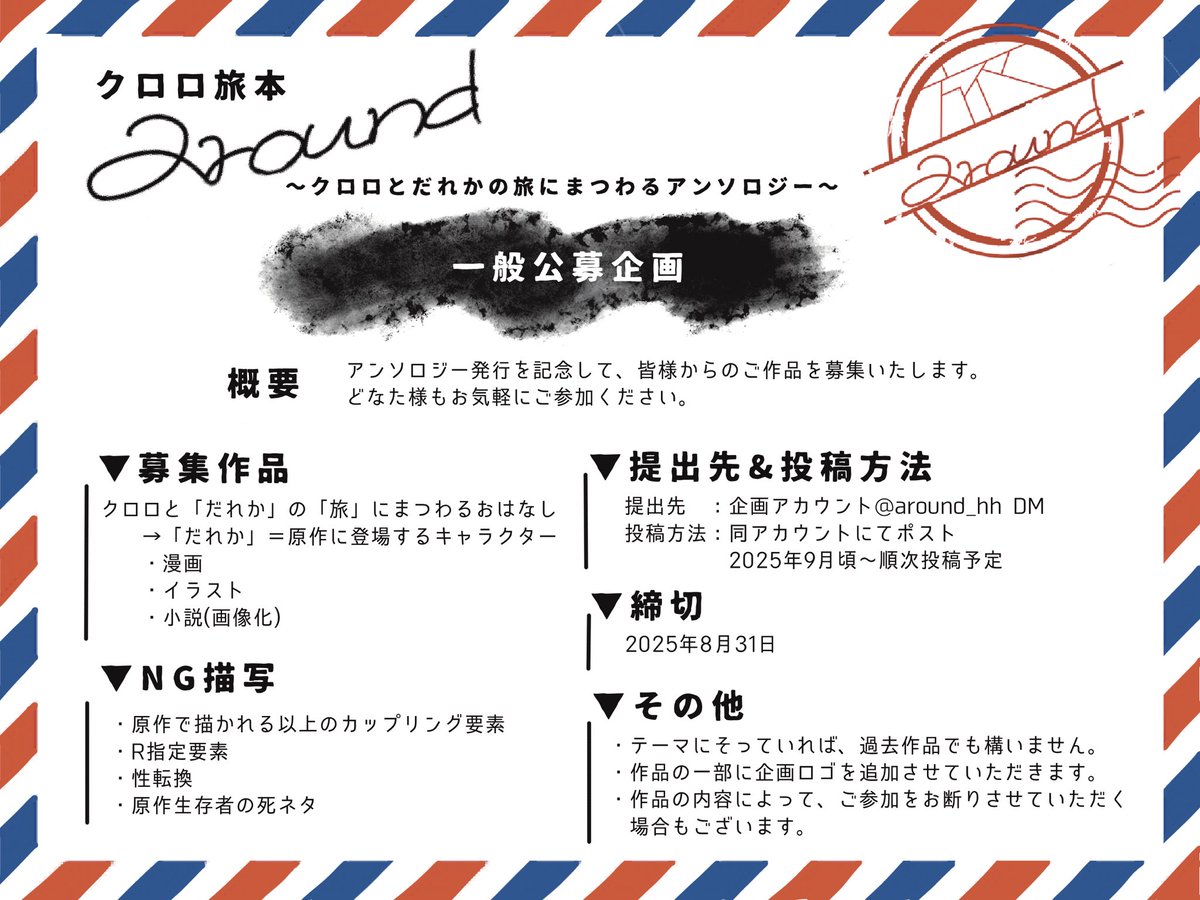 クロロ旅本
around
around
～クロロとだれかの旅にまつわるアンソロジー～
一般公募企画
概要
アンソロジー発行を記念して、皆様からのご作品を募集いたします。
どなた様もお気軽にご参加ください。
▼募集作品
クロロと「だれか」の「旅」にまつわるおはなし
→「だれか」＝原作に登場するキャラクター
・漫画
・イラスト
・小説(画像化)
▼NG描写
・原作で描かれる以上のカップリング要素
・R指定要素
・性転換
・原作生存者の死ネタ
▼提出先&投稿方法
提出先　：企画アカウント@around_hh DM
投稿方法：同アカウントにてポスト
2025年9月頃～順次投稿予定
▼締切
2025年8月31日
▼その他
・テーマにそっていれば、過去作品でも構いません。
・作品の一部に企画ロゴを追加させていただきます。
・作品の内容によって、ご参加をお断りさせていただく
場合もございます。